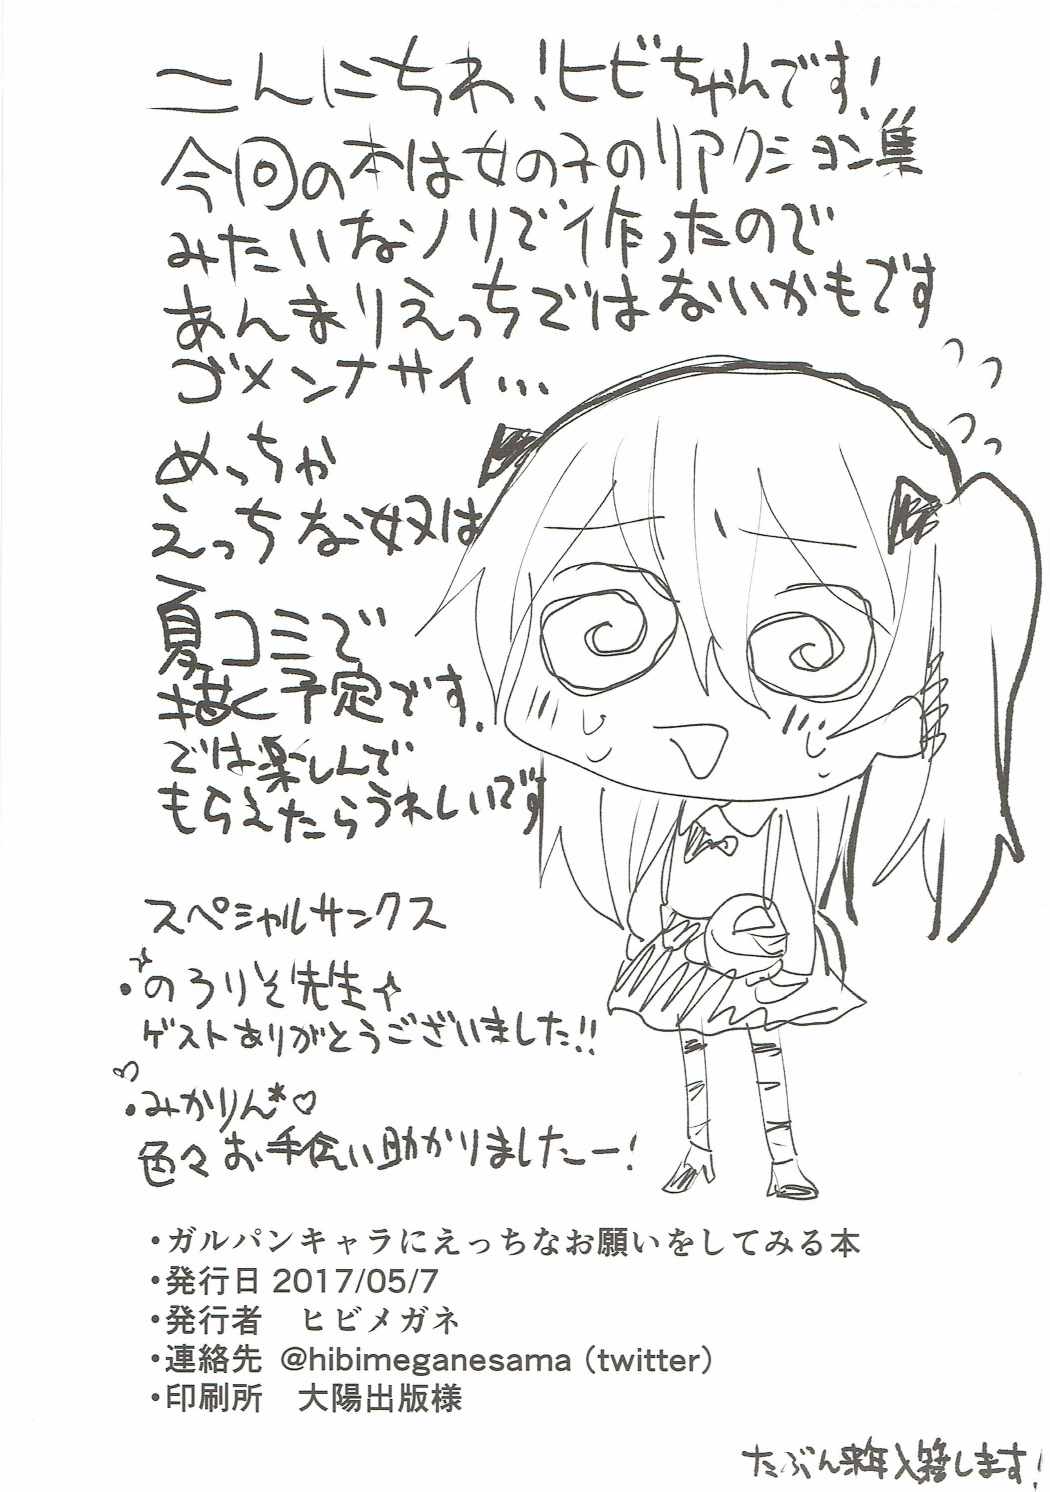 こんにちわ!ヒビちゃんです!
今回の本は女の子のリアクション集
みたいなノリで作ったので
あんまりえっちではないかもです
ゴメンナサイ…
めっちゃ
えっちな奴は
夏コミで
描く予定です.
では楽しんで
もらえたらうれしいです
スペシャルサンクス
・のろりそ先生
ゲストありがとうございました!!
・みかりん*♡
色々お手伝い助かりましたー!
・ガルパンキャラにえっちなお願いをしてみる本
・発行日 2017/05/7
・発行者　ヒビメガネ
・連絡先 @hibimeganesama (twitter)
・印刷所　大陽出版様
たぶん来年入籍します!